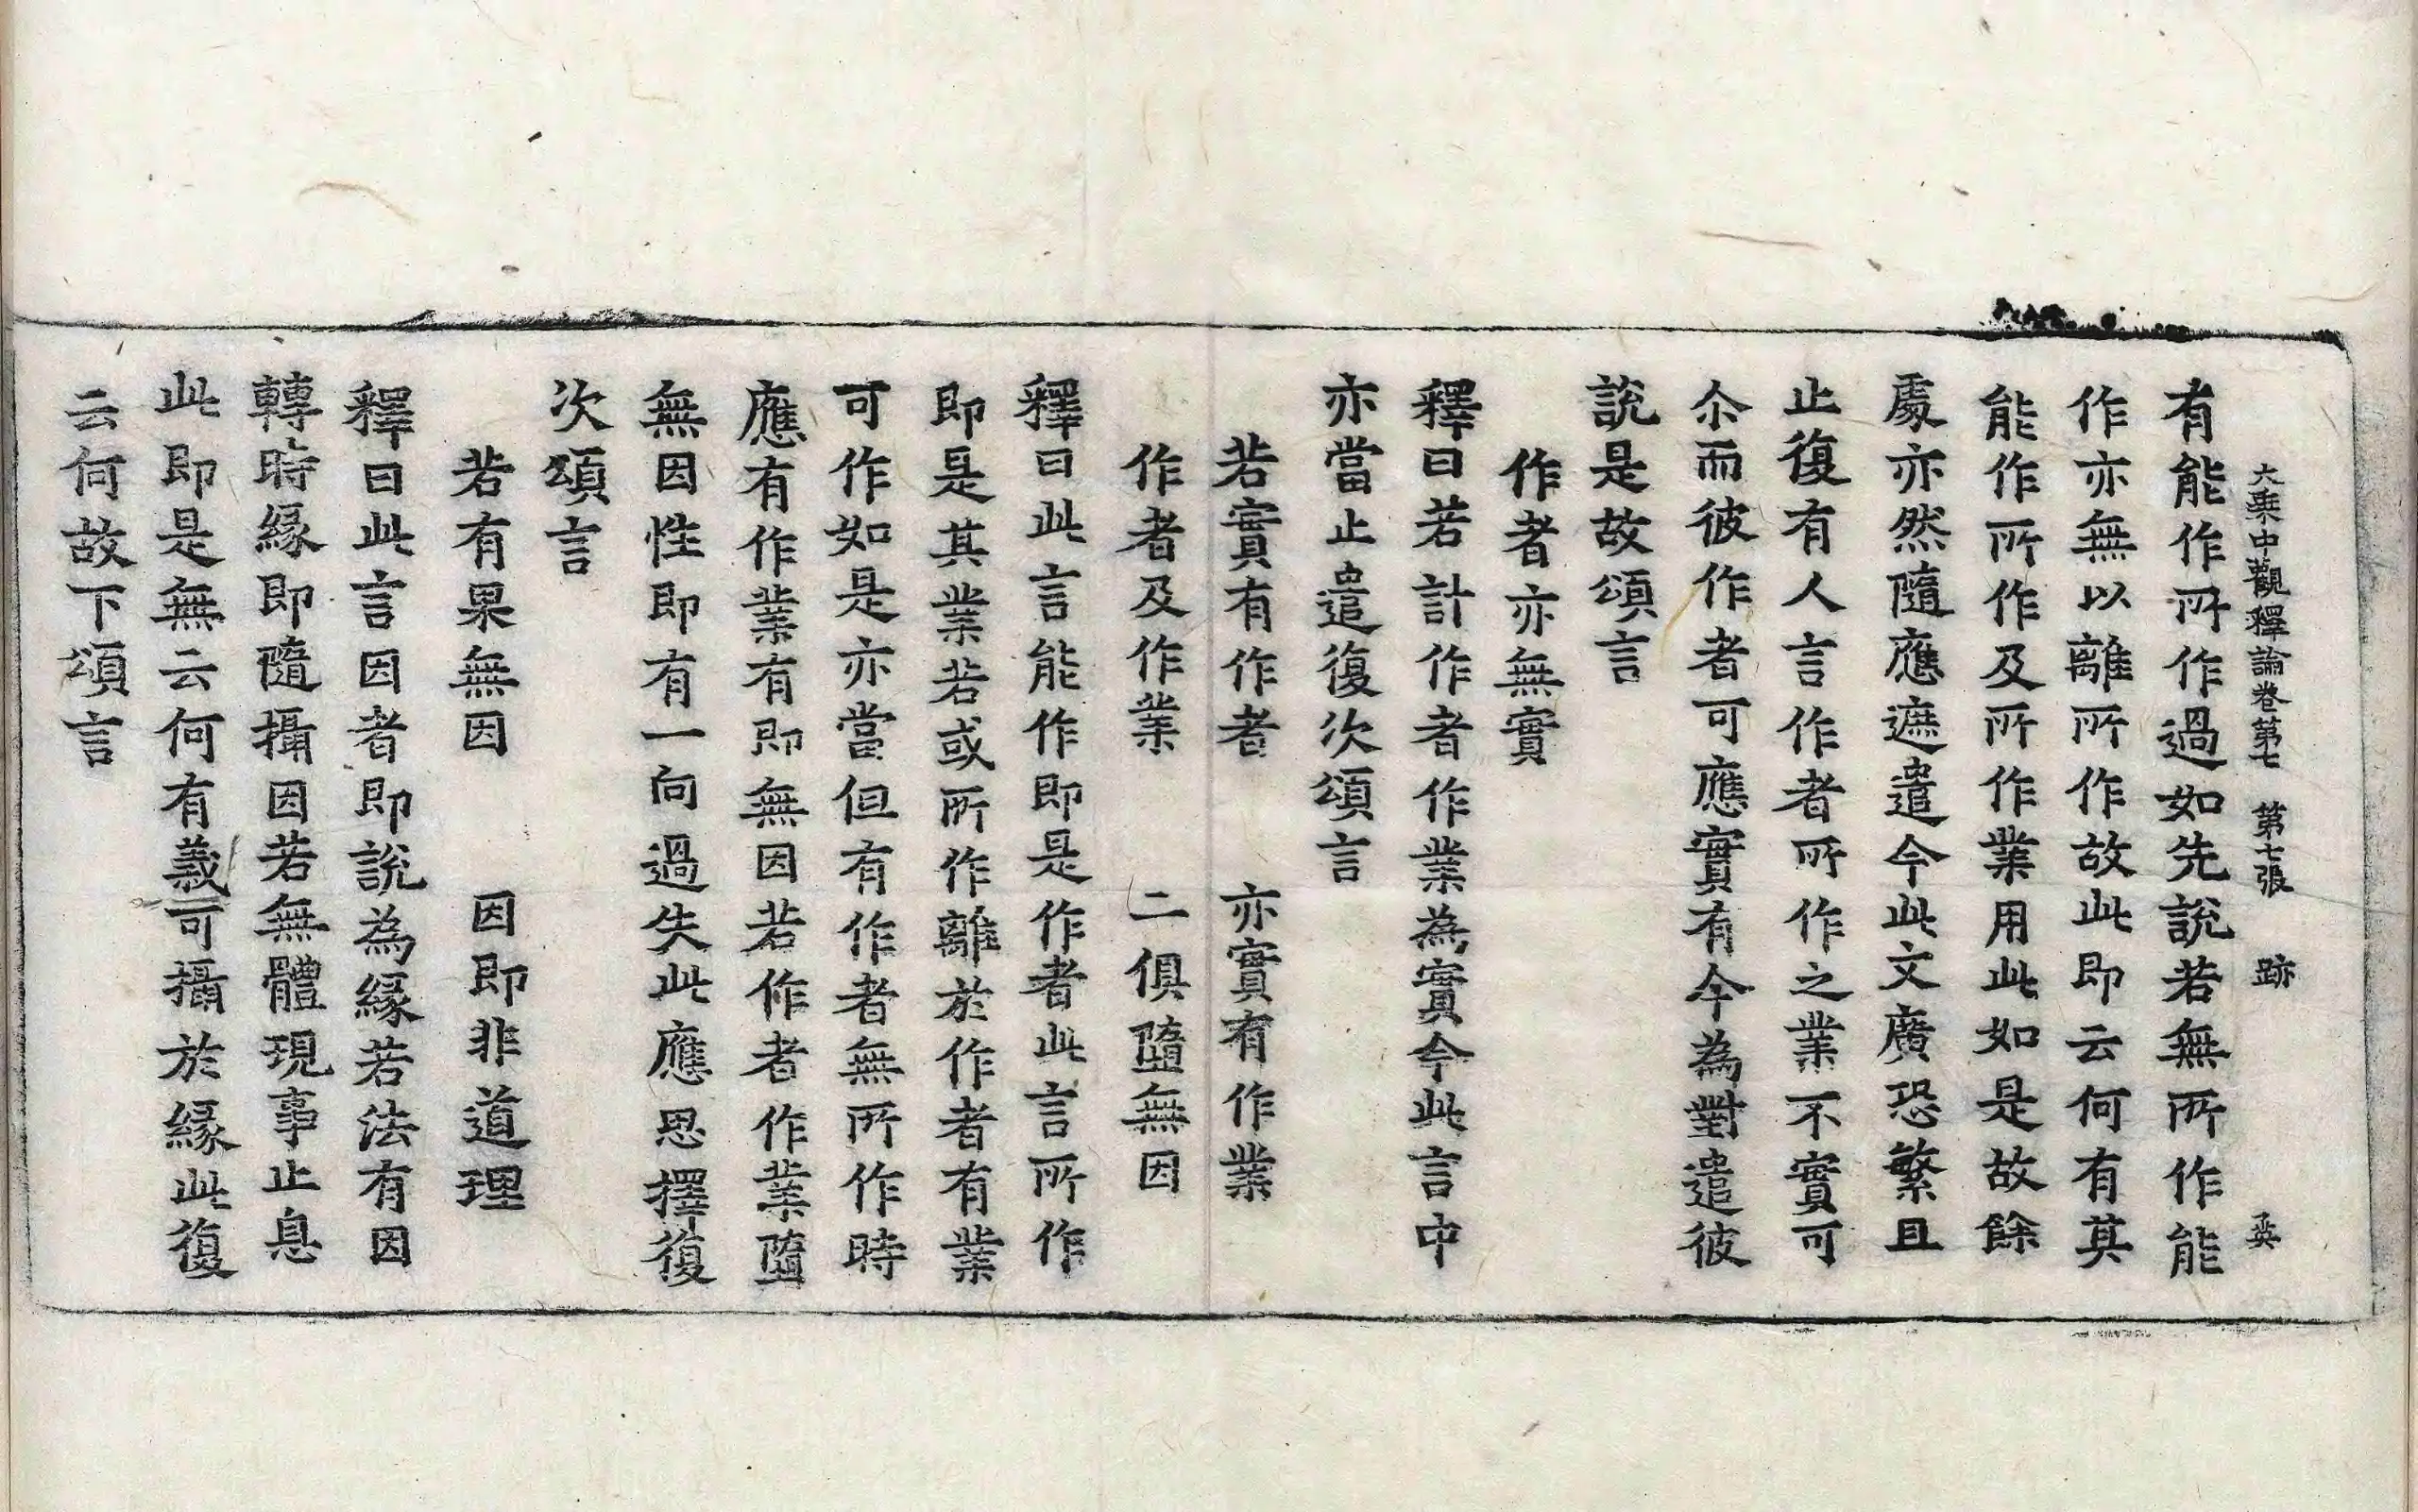 大乗中觀釋論卷第七　第七張　跡　英
有能作所作過如先說若無所作能
作亦無以離所作故此即云何有其
能作所作及所作業用此如是故餘
處亦然隨應遮遣今此文廣恐繁且
止復有人言作者所作之業不實可
尒而彼作者可應實有今為對遣彼
說是故頌言
作者亦無實
釋曰若計作者作業為實今此言中
亦當止遣復次頌言
若實有作者　亦實有作業
作者及作業　二俱墮無因
釋曰此言能作即是作者此言所作
即是其業若或所作離於作者有業
可作如是亦當但有作者無所作時
應有作業有即無因若作者作業墮
無因性即有一向過失此應思擇復
次頌言
若有果無因　因即非道理
釋曰此言因者即說為緣若法有因
轉時緣即隨攝因若無體現事止息
此即是無云何有義可攝於緣此復
云何故下頌言